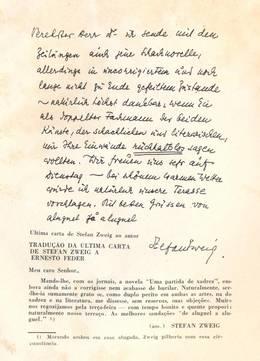 Verehrter Herr Dr. ich sende mit den
Zeitungen auch jene Schachnovelle,
allerdings in uncorrigiertem und noch
lange nicht zu Ende gefeiltem Zustande
– natürlich höchst dankbar, wenn Sie
als doppelter Fachmann der beiden
Künste, der schachlichen und literarischen,
mir Ihre Einwände rückhaltlos sagen
wollten. Wir freuen uns sehr auf
Dienstag – bei schönem warmen Wetter
würde ich natürlich unsere Terasse
vorschlagen. Mit besten Grüssen von
alugnel zu alugnel
Stefan Zweig
Ultima carta de Stefan Zweig ao autor
TRADUÇÃO DA ULTIMA CARTA
DE STEFAN ZWEIG A
ERNESTO FEDER
Meu caro Senhor,
Mando-lhe, com os jornais, a novela "Uma partida de xadrez", em-
bora ainda não a corrigisse nem acabasse de burilar. Naturalmente, ser-
lhe-ia sumamente grato se, como duplo perito em ambas as artes, na do
xadrez e na literatura, me dissesse, sem reservas, suas objeções. Muito
nos regozijamos pela terça-feira — com tempo bonito e quente proporei
naturalmente nosso terraço. As melhores saudações "de alugnel a alu-
gnel." ¹)
(ass.) STEFAN ZWEIG
1) Morando ambos em casa alugada, Zweig pilheria com essa cir-
cunstancia.